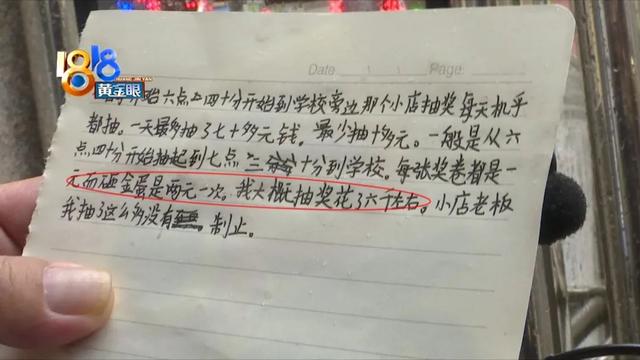 1818
黄金眼
Date
Page:
开始六点四十分开始到学校旁边那个小店抽奖每天机乎
都抽。一天最多抽了七十多元钱。最少抽十多元。一般是从六
点四十分开始抽起到七点二十分到学校。每张奖卷都是一
元而砸金蛋是两元一次。我大概抽奖花了六千左右。小店老板
我抽了这么多没有制止。